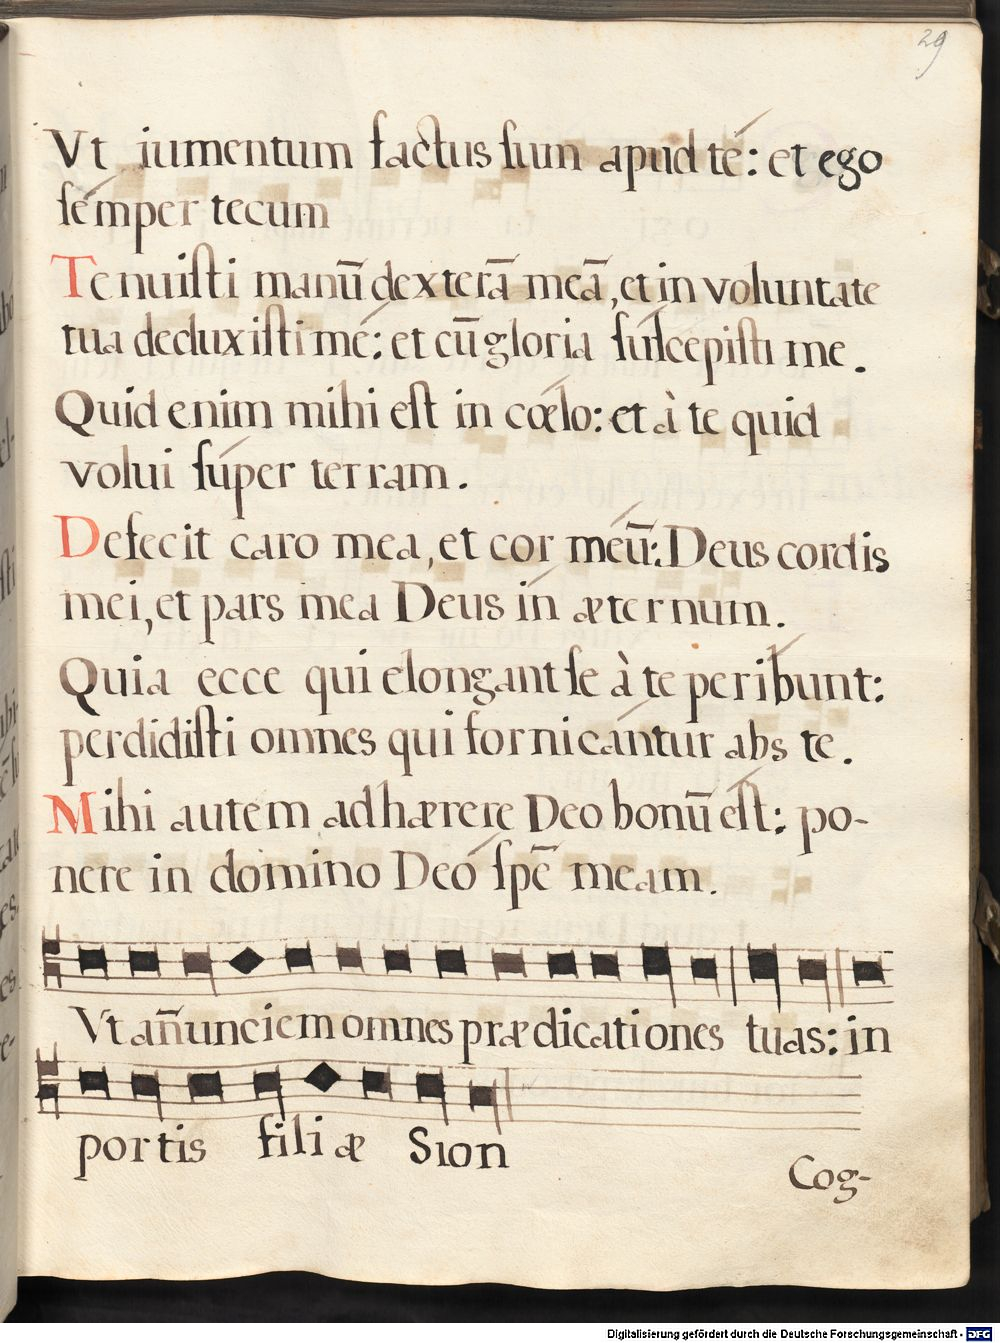 29
Vt iumentum factus sum apud té: et ego
sémper tecum
Tenuisti manū dexterā meā, et in voluntate
tua deduxisti mé: et cū gloria súscepisti me.
Quid enim mihi est in cœlo: et à te quid
volui súper terram.
Defecit caro mea, et cor méū: Deus cordis
mei, et pars mea Deus ín æternum.
Quia ecce qui elongant se à te períbunt:
perdidisti omnes qui fornicántur abs te.
Mihi autem adhærere Deo bonū ést: po-
nere in domino Deó spē meam.
Vt añunciem omnes prædicationes tuas: in
portis filiæ Sion
Cog-
Digitalisierung gefördert durch die Deutsche Forschungsgemeinschaft - DFG